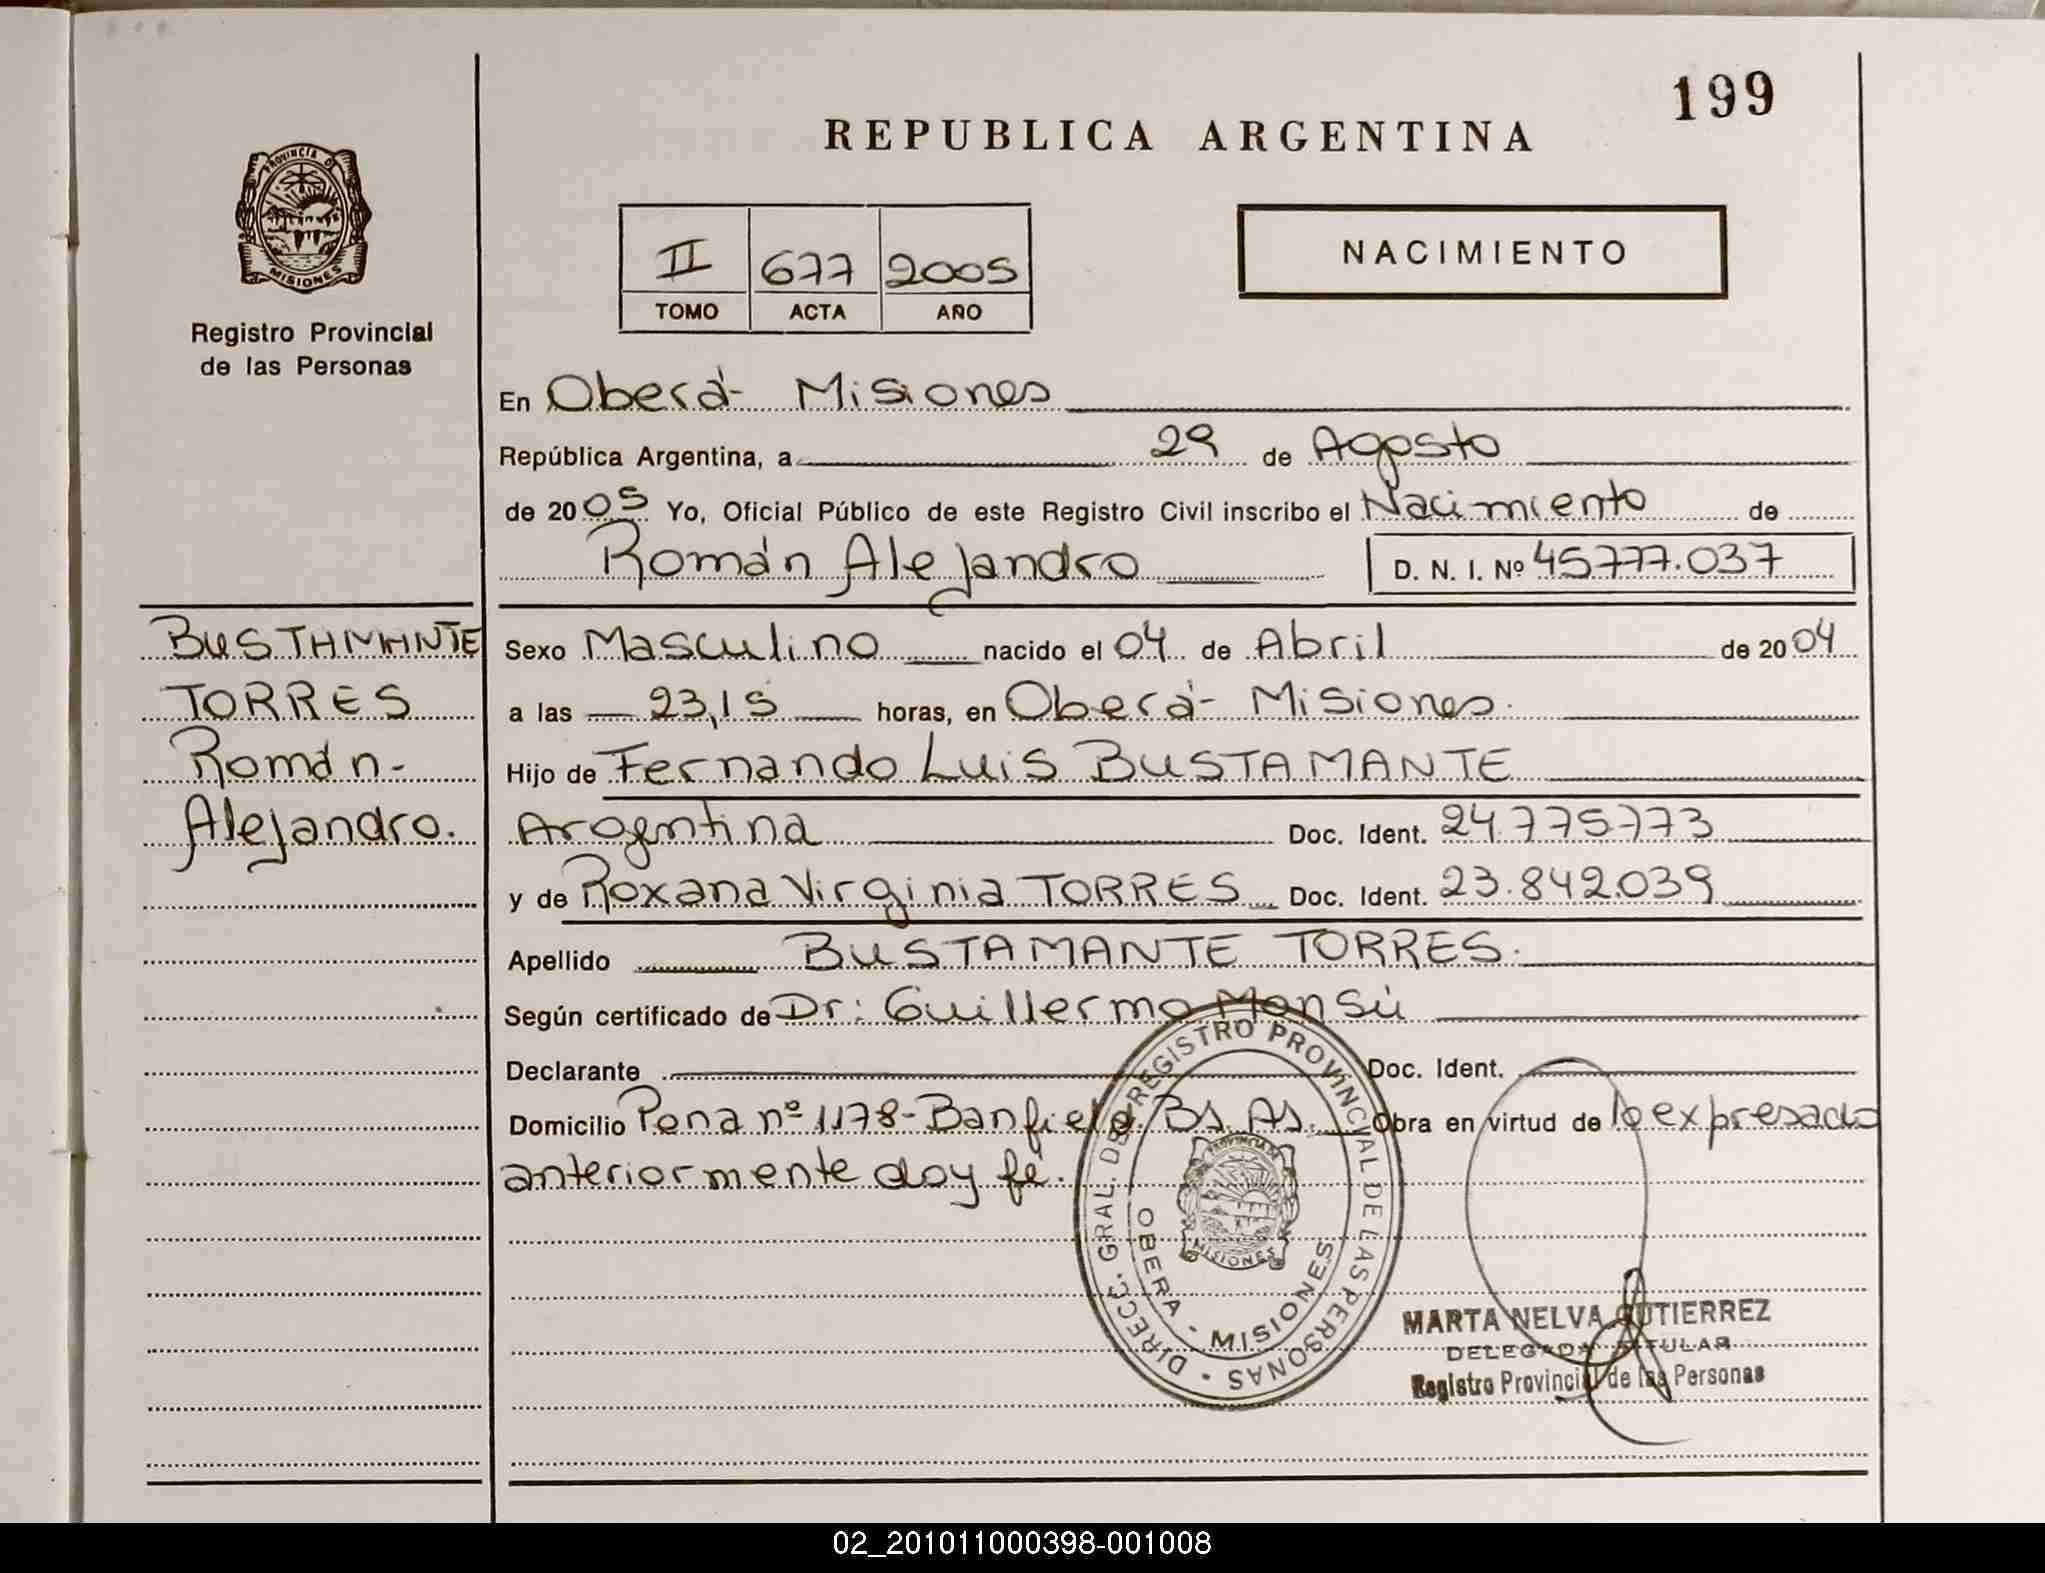 199
REPUBLICA ARGENTINA
PROVINCIA D
MISIONES
Registro Provincial
de las Personas
II 677 2005
TOMO ACTA AÑO
NACIMIENTO
En Oberá- Misiones
República Argentina, a 29 de Agosto
de 2005 Yo, Oficial Público de este Registro Civil inscribo el Nacimiento de
Román Alejandro D. N. I. Nº 45777.037
BUSTAMANTE
TORRES
Román-
Alejandro.
Sexo Masculino nacido el 04 de Abril de 2004
a las 23,15 horas, en Oberá- Misiones.
Hijo de Fernando Luis BUSTAMANTE
Argentina Doc. Ident. 24.775773
y de Roxana Virginia TORRES Doc. Ident. 23.842.039
Apellido BUSTAMANTE TORRES.
Según certificado de Dr: Guillermo Monsú
Declarante Doc. Ident.
Domicilio Pena nº 1178-Banfield. Bs. As. Obra en virtud de lo expresado
anteriormente doy fé.
DIRECC. GRAL. DEL REGISTRO PROVINCIAL DE LAS PERSONAS
OBERA - MISIONES
MISIONES
MARTA NELVA GUTIERREZ
DELEGADA TITULAR
Registro Provincial de las Personas
02_201011000398-001008